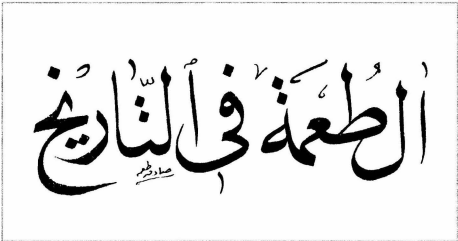 آل طُعمة في التّاريخ
صادق طعمه